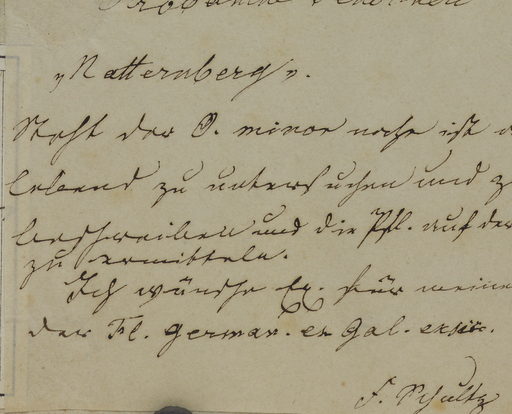 Orobanche
„Natternberg".
Steht der O. minor nahe ist
lebend zu untersuchen und z
beschreiben und die Pfl. auf der
zu ermitteln.
Ich wünsche Ex. für meine
der Fl. german. et Gal. exsic.
F. Schultz